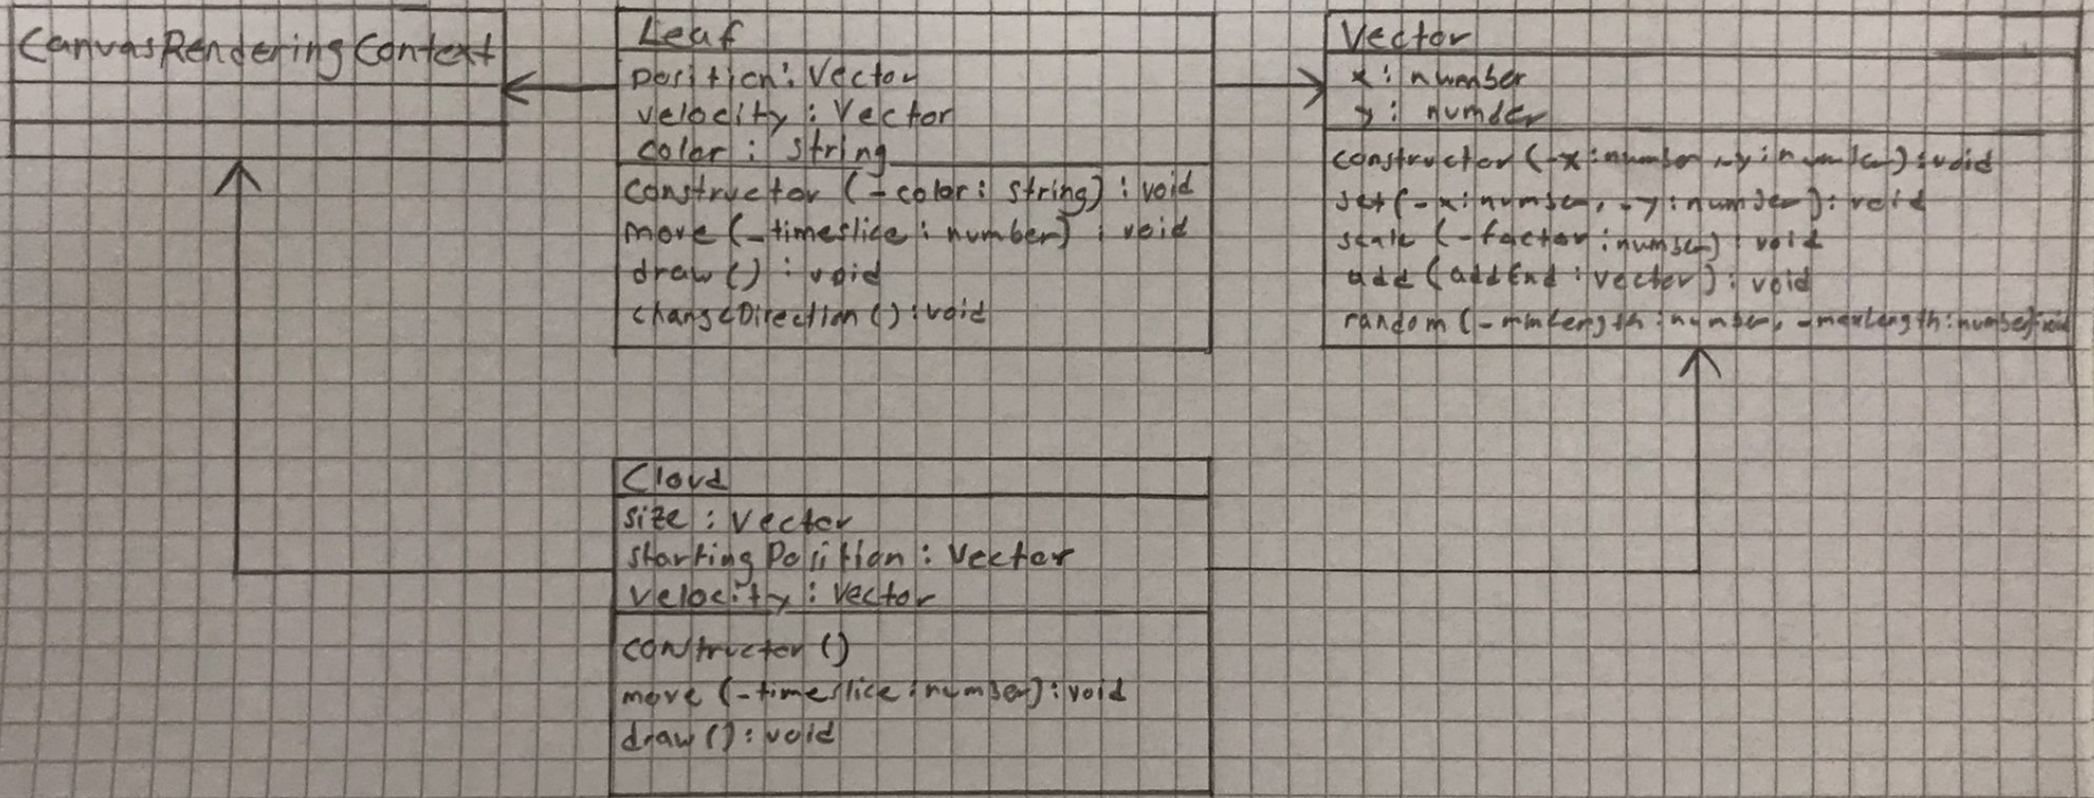 CanvasRenderingContext
Leaf
position: Vector
velocity : Vector
color : string
constructor (_color: string) : void
move (_timeslice : number) : void
draw () : void
changeDirection () : void
Vector
x : number
y : number
constructor (_x : number, _y : number) : void
set (_x : number, _y : number) : void
scale (_factor : number) : void
add (addEnd : vector) : void
random (_minLength : number, _maxLength : number) : void
Cloud
size : Vector
startingPosition : Vector
velocity : Vector
constructor ()
move (_timeslice : number) : void
draw () : void